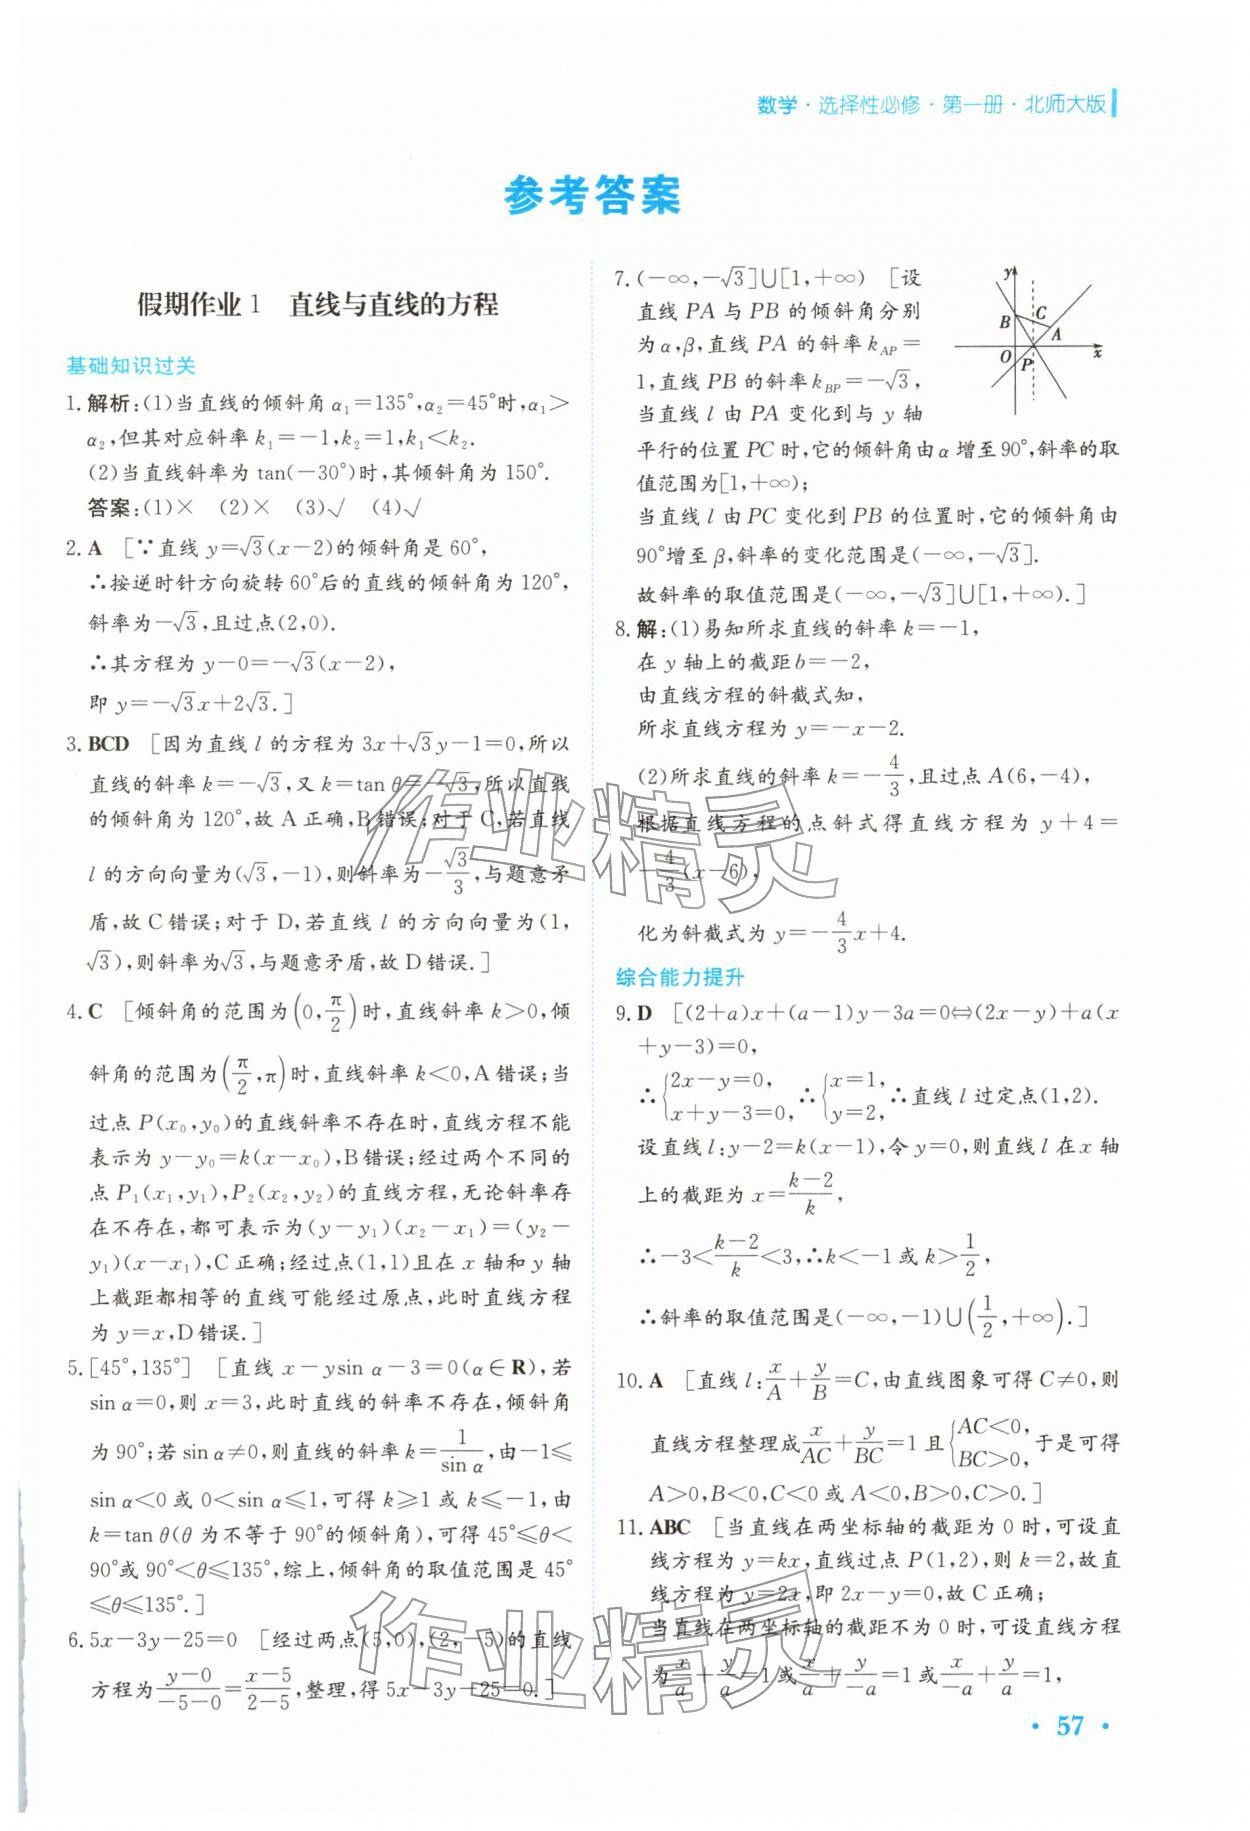 数学·选择性必修·第一册·北师大版
参考答案
假期作业1　直线与直线的方程
基础知识过关
1.解析:(1)当直线的倾斜角α₁=135°,α₂=45°时,α₁>
α₂,但其对应斜率k₁=-1,k₂=1,k₁<k₂.
(2)当直线斜率为tan(-30°)时,其倾斜角为150°.
答案:(1)×　(2)×　(3)√　(4)√
2.A　[∵直线y=√3(x-2)的倾斜角是60°,
∴按逆时针方向旋转60°后的直线的倾斜角为120°,
斜率为-√3,且过点(2,0).
∴其方程为y-0=-√3(x-2),
即y=-√3x+2√3.]
3.BCD　[因为直线l的方程为3x+√3y-1=0,所以
直线的斜率k=-√3,又k=tan θ=-√3,所以直线
的倾斜角为120°,故A正确,B错误;对于C,若直线
l的方向向量为(√3,-1),则斜率为-√3/3,与题意矛
盾,故C错误;对于D,若直线l的方向向量为(1,
√3),则斜率为√3,与题意矛盾,故D错误.]
4.C　[倾斜角的范围为(0,π/2)时,直线斜率k>0,倾
斜角的范围为(π/2,π)时,直线斜率k<0,A错误;当
过点P(x₀,y₀)的直线斜率不存在时,直线方程不能
表示为y-y₀=k(x-x₀),B错误;经过两个不同的
点P₁(x₁,y₁),P₂(x₂,y₂)的直线方程,无论斜率存
在不存在,都可表示为(y-y₁)(x₂-x₁)=(y₂-
y₁)(x-x₁),C正确;经过点(1,1)且在x轴和y轴
上截距都相等的直线可能经过原点,此时直线方程
为y=x,D错误.]
5.[45°,135°]　[直线x-ysin α-3=0(α∈R),若
sin α=0,则x=3,此时直线的斜率不存在,倾斜角
为90°;若sin α≠0,则直线的斜率k=1/sin α,由-1≤
sin α<0或0<sin α≤1,可得k≥1或k≤-1,由
k=tan θ(θ为不等于90°的倾斜角),可得45°≤θ<
90°或90°<θ≤135°,综上,倾斜角的取值范围是45°
≤θ≤135°.]
6.5x-3y-25=0　[经过两点(5,0),(2,-5)的直线
方程为(y-0)/(-5-0)=(x-5)/(2-5),整理,得5x-3y-25=0.]
7.(-∞,-√3]∪[1,+∞)　[设
直线PA与PB的倾斜角分别
为α,β,直线PA的斜率k_AP=
1,直线PB的斜率k_BP=-√3,
当直线l由PA变化到与y轴
y
B
C
A
O
P
x
平行的位置PC时,它的倾斜角由α增至90°,斜率的取
值范围为[1,+∞);
当直线l由PC变化到PB的位置时,它的倾斜角由
90°增至β,斜率的变化范围是(-∞,-√3].
故斜率的取值范围是(-∞,-√3]∪[1,+∞).]
8.解:(1)易知所求直线的斜率k=-1,
在y轴上的截距b=-2,
由直线方程的斜截式知,
所求直线方程为y=-x-2.
(2)所求直线的斜率k=-4/3,且过点A(6,-4),
根据直线方程的点斜式得直线方程为y+4=
-4/3(x-6),
化为斜截式为y=-4/3x+4.
综合能力提升
9.D　[(2+a)x+(a-1)y-3a=0⇔(2x-y)+a(x
+y-3)=0,
∴{2x-y=0, x+y-3=0, ∴{x=1, y=2, ∴直线l过定点(1,2).
设直线l:y-2=k(x-1),令y=0,则直线l在x轴
上的截距为x=(k-2)/k,
∴-3<(k-2)/k<3,∴k<-1或k>1/2,
∴斜率的取值范围是(-∞,-1)∪(1/2,+∞).]
10.A　[直线l:x/A+y/B=C,由直线图象可得C≠0,则
直线方程整理成x/AC+y/BC=1且{AC<0, BC>0, 于是可得
A>0,B<0,C<0或A<0,B>0,C>0.]
11.ABC　[当直线在两坐标轴的截距为0时,可设直
线方程为y=kx,直线过点P(1,2),则k=2,故直
线方程为y=2x,即2x-y=0,故C正确;
当直线在两坐标轴的截距不为0时,可设直线方程
为x/a+y/a=1或x/a+y/-a=1或x/-a+y/a=1,
作业精灵
作业精灵
·57·